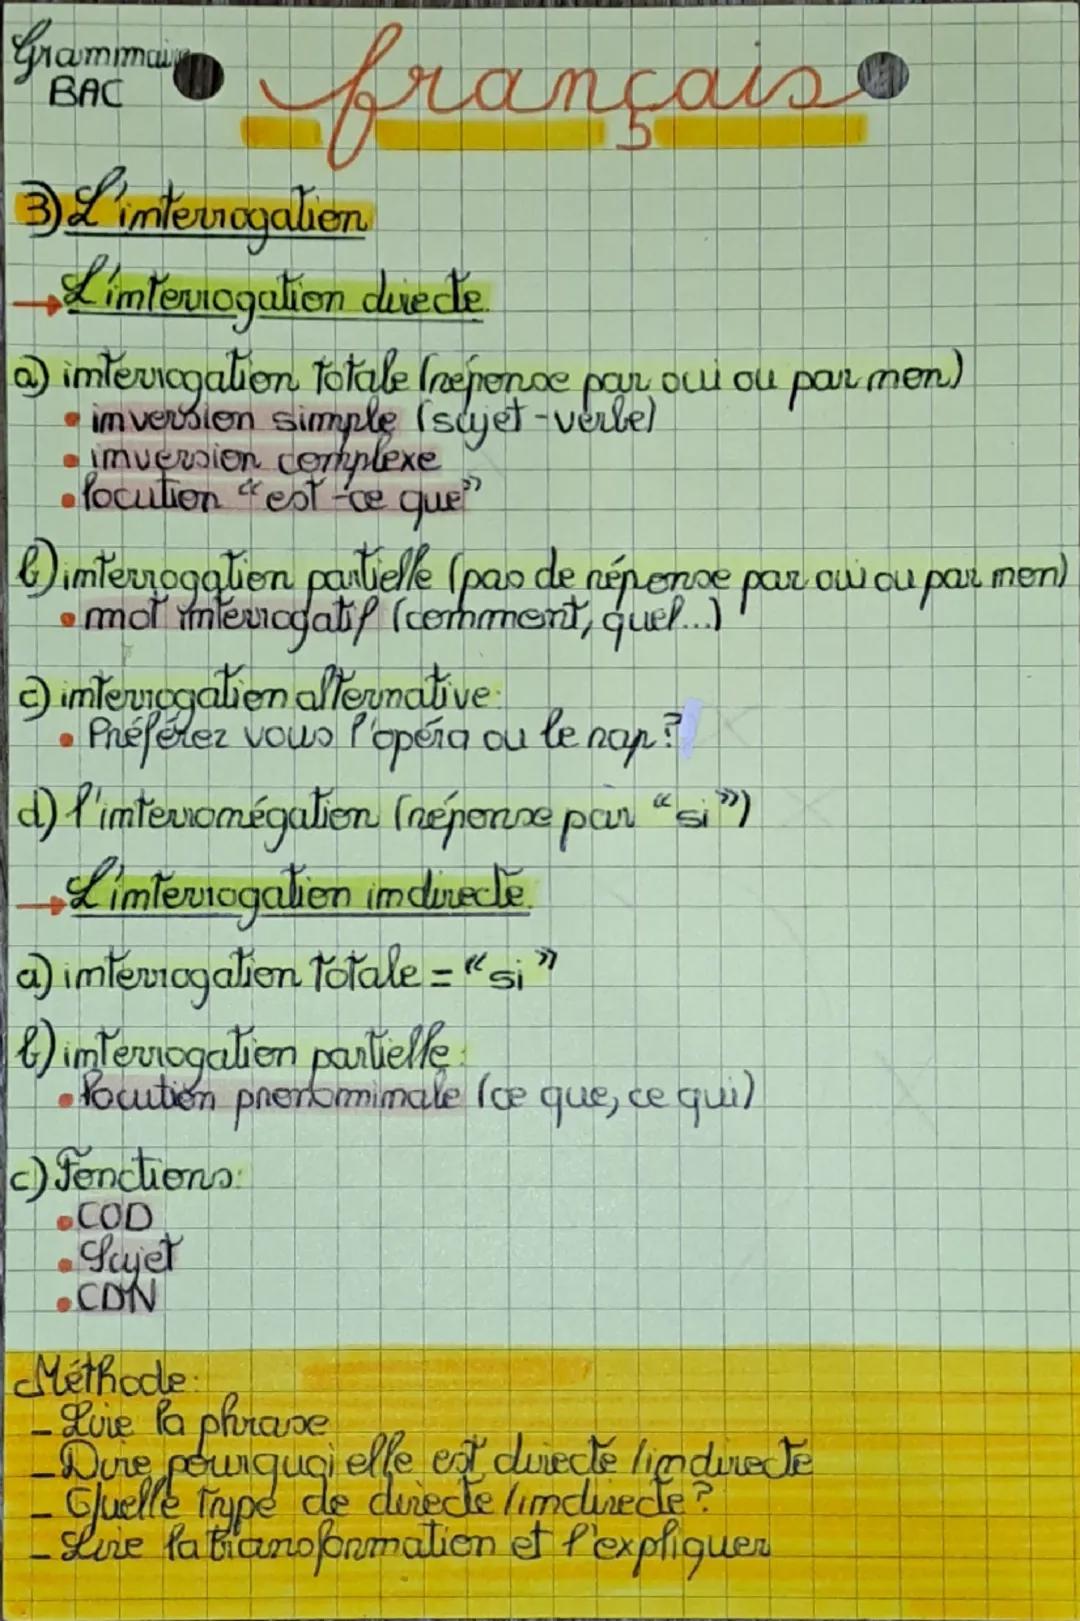 Grammaire
BAC
français
3) L'interrogation
→ L'interrogation directe.
a) interrogation totale (réponse par oui ou par non)
• inversion simple (sujet-verbe)
• inversion complexe
• locution "est-ce que"
b) interrogation partielle (pas de réponse par oui ou par non)
• mot interrogatif (comment, quel...)
c) interrogation alternative:
• Préférez vous l'opéra ou le rap?
d) l'interronégation (réponse par "si")
→ L'interrogation indirecte.
a) interrogation totale = "si"
b) interrogation partielle:
• locution pronominale (ce que, ce qui)
c) Fonctions:
• COD
• Sujet
• CDN
Méthode:
- Lire la phrase
- Dire pourquoi elle est directe/indirecte
- Quelle type de directe/indirecte?
- Lire la transformation et l'expliquer